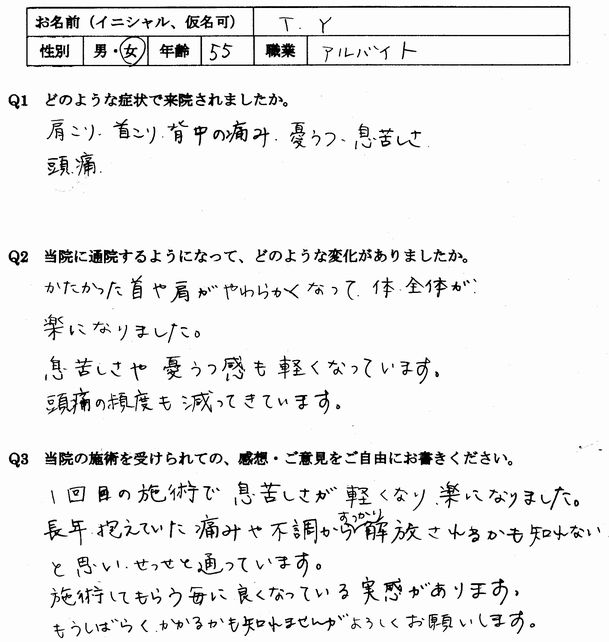 お名前（イニシャル、仮名可） T. Y
性別 男・女 年齢 55 職業 アルバイト
Q1 どのような症状で来院されましたか。
肩こり、首こり、背中の痛み、憂うつ、息苦しさ、
頭痛、
Q2 当院に通院するようになって、どのような変化がありましたか。
かたかった首や肩がやわらかくなって、体全体が
楽になりました。
息苦しさや憂うつ感も軽くなっています。
頭痛の頻度も減ってきています。
Q3 当院の施術を受けられての、感想・ご意見をご自由にお書きください。
1回目の施術で息苦しさが軽くなり、楽になりました。
長年、抱えていた痛みや不調からすっかり解放されるかも知れない
と思い、せっせと通っています。
施術してもらう毎に良くなっている実感があります。
もうしばらく、かかるかも知れませんがよろしくお願いします。